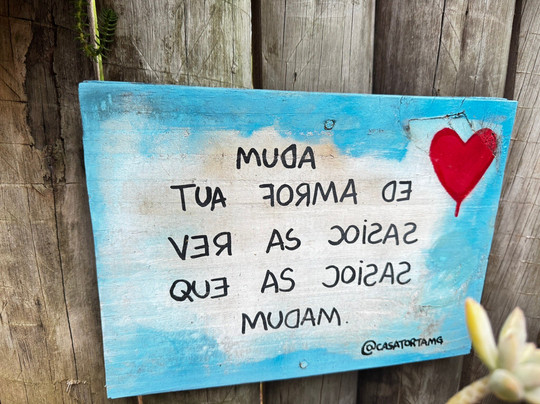 MUDA
TUA FORMA DE
VER AS COISAS
QUE AS COISAS
MUDAM.
@CASATORTAMG